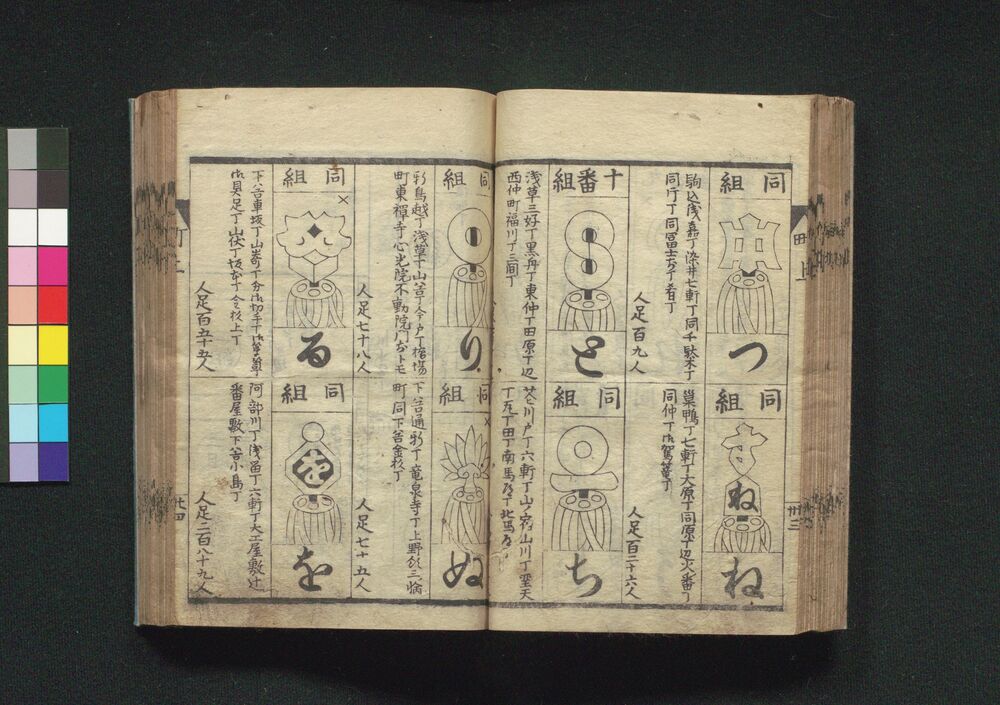 同組
つ
駒込浅嘉丁染井七軒丁同千駄木丁
同片丁同冨士前丁肴丁
同組
ね
ね
巣鴨丁七軒丁大原丁同原丁辺火番丁
同仲丁御駕篭丁
十番組
と
人足百九人
浅草三好丁黒舟丁東仲丁田原丁辺
西仲町福川丁三間丁
同組
ち
人足百二十六人
花川戸丁六軒丁山ノ宿山川丁聖天
丁瓦丁田丁南馬道丁北馬道
同組
り
新鳥越丁浅草丁山谷丁今戸丁橋場
町東禅寺心光院不動院門前トモ
人足七十八人
同組
ぬ
下谷通新丁竜泉寺丁上野領三崎
町同下谷金杉丁
人足七十五人
同組
る
下谷車坂丁山崎丁
御具足丁山伏丁坂本丁金杉上丁
人足百五十五人
同組
を
を
阿部川丁浅留丁六軒丁大工屋敷辻
番屋敷下谷小島丁
人足二百八十九人
田上
卅三
丁二
廿四